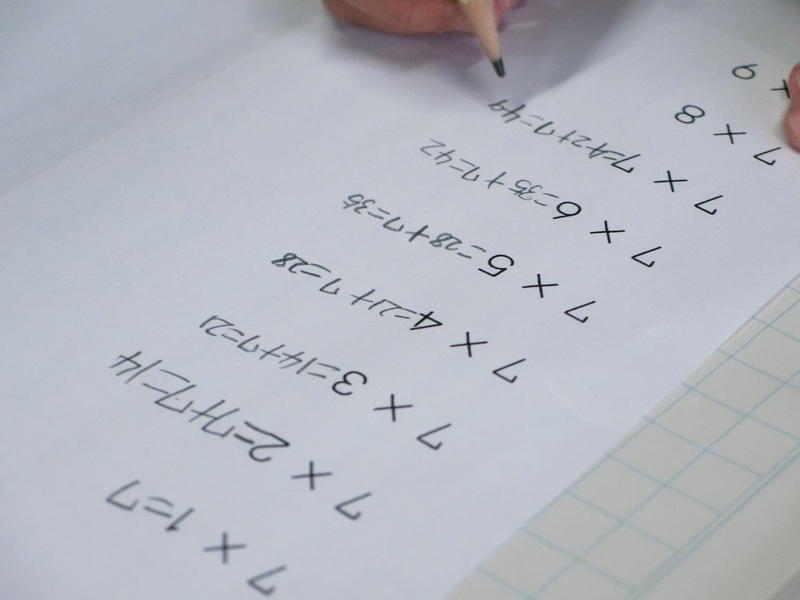 7 × 1=7
7 × 2=7+7=14
7 × 3=14+7=21
7 × 4=21+7=28
7 × 5=28+7=35
7 × 6=35+7=42
7 × 7=42+7=49
7 × 8
× 9